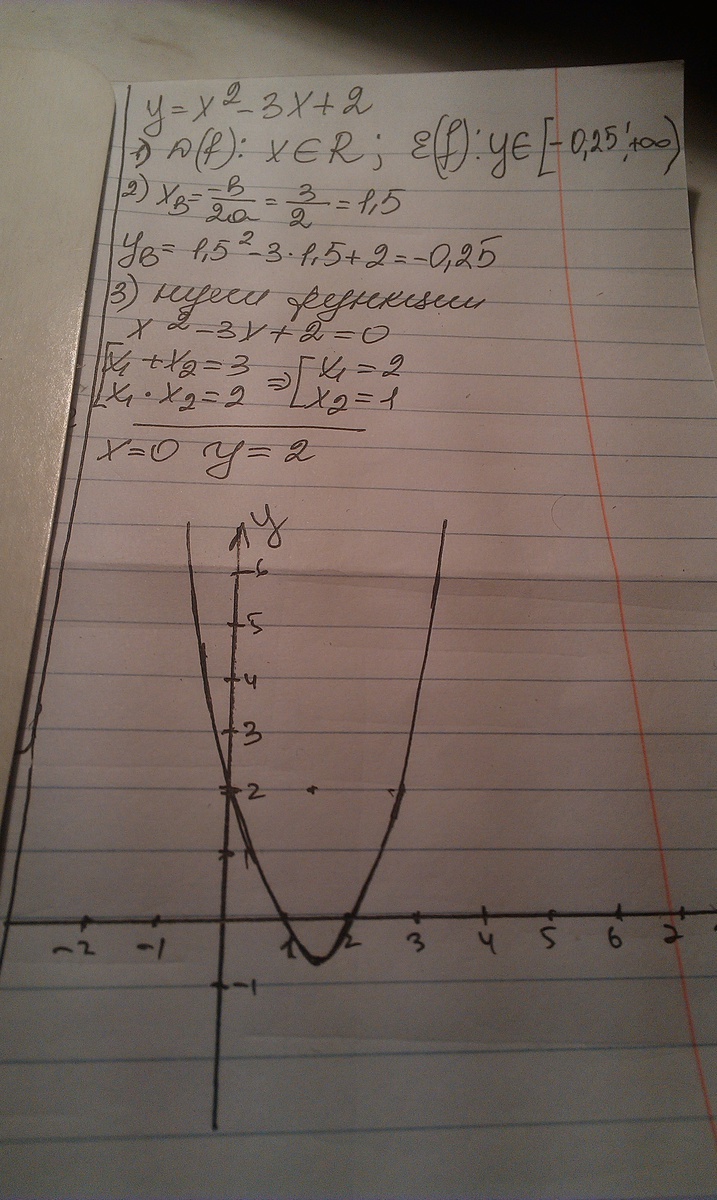 y = x² - 3x + 2
1) D(f): x ∈ R ; E(f): y ∈ [-0,25; +∞)
2) xв = -в/2a = 3/2 = 1,5
yв = 1,5² - 3·1,5 + 2 = -0,25
3) нули функции
x² - 3x + 2 = 0
[x₁ + x₂ = 3 ⇒ [x₁ = 2
[x₁ · x₂ = 2 [x₂ = 1
x=0 y = 2
y
6
5
4
3
2
1
-2 -1 1 2 3 4 5 6 7
-1